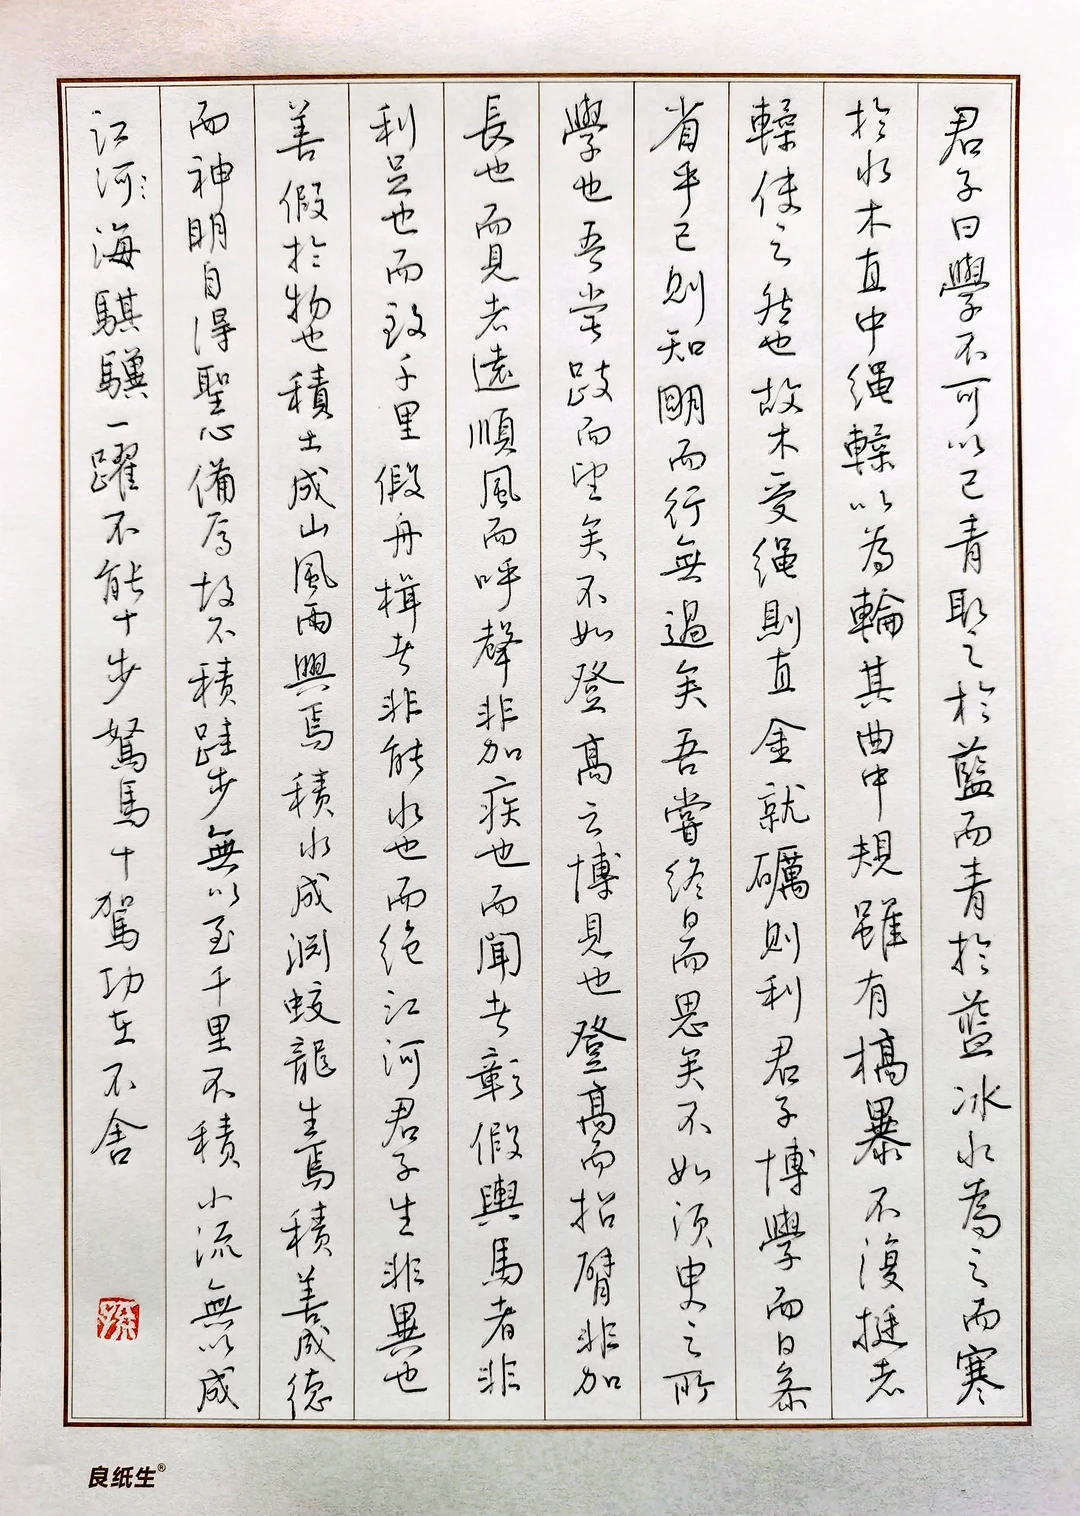 君子曰學不可以已青取之於藍而青於藍冰水為之而寒
於水木直中繩輮以為輪其曲中規雖有槁暴不復挺者
輮使之然也故木受繩則直金就礪則利君子博學而日參
省乎己則知明而行無過矣吾嘗終日而思矣不如須臾之所
學也吾嘗跂而望矣不如登高之博見也登高而招臂非加
長也而見者遠順風而呼聲非加疾也而聞者彰假輿馬者非
利足也而致千里假舟楫者非能水也而絕江河君子生非異也
善假於物也積土成山風雨興焉積水成淵蛟龍生焉積善成德
而神明自得聖心備焉故不積跬步無以至千里不積小流無以成
江河:海騏驥一躍不能十步駑馬十駕功在不舍
良纸生®